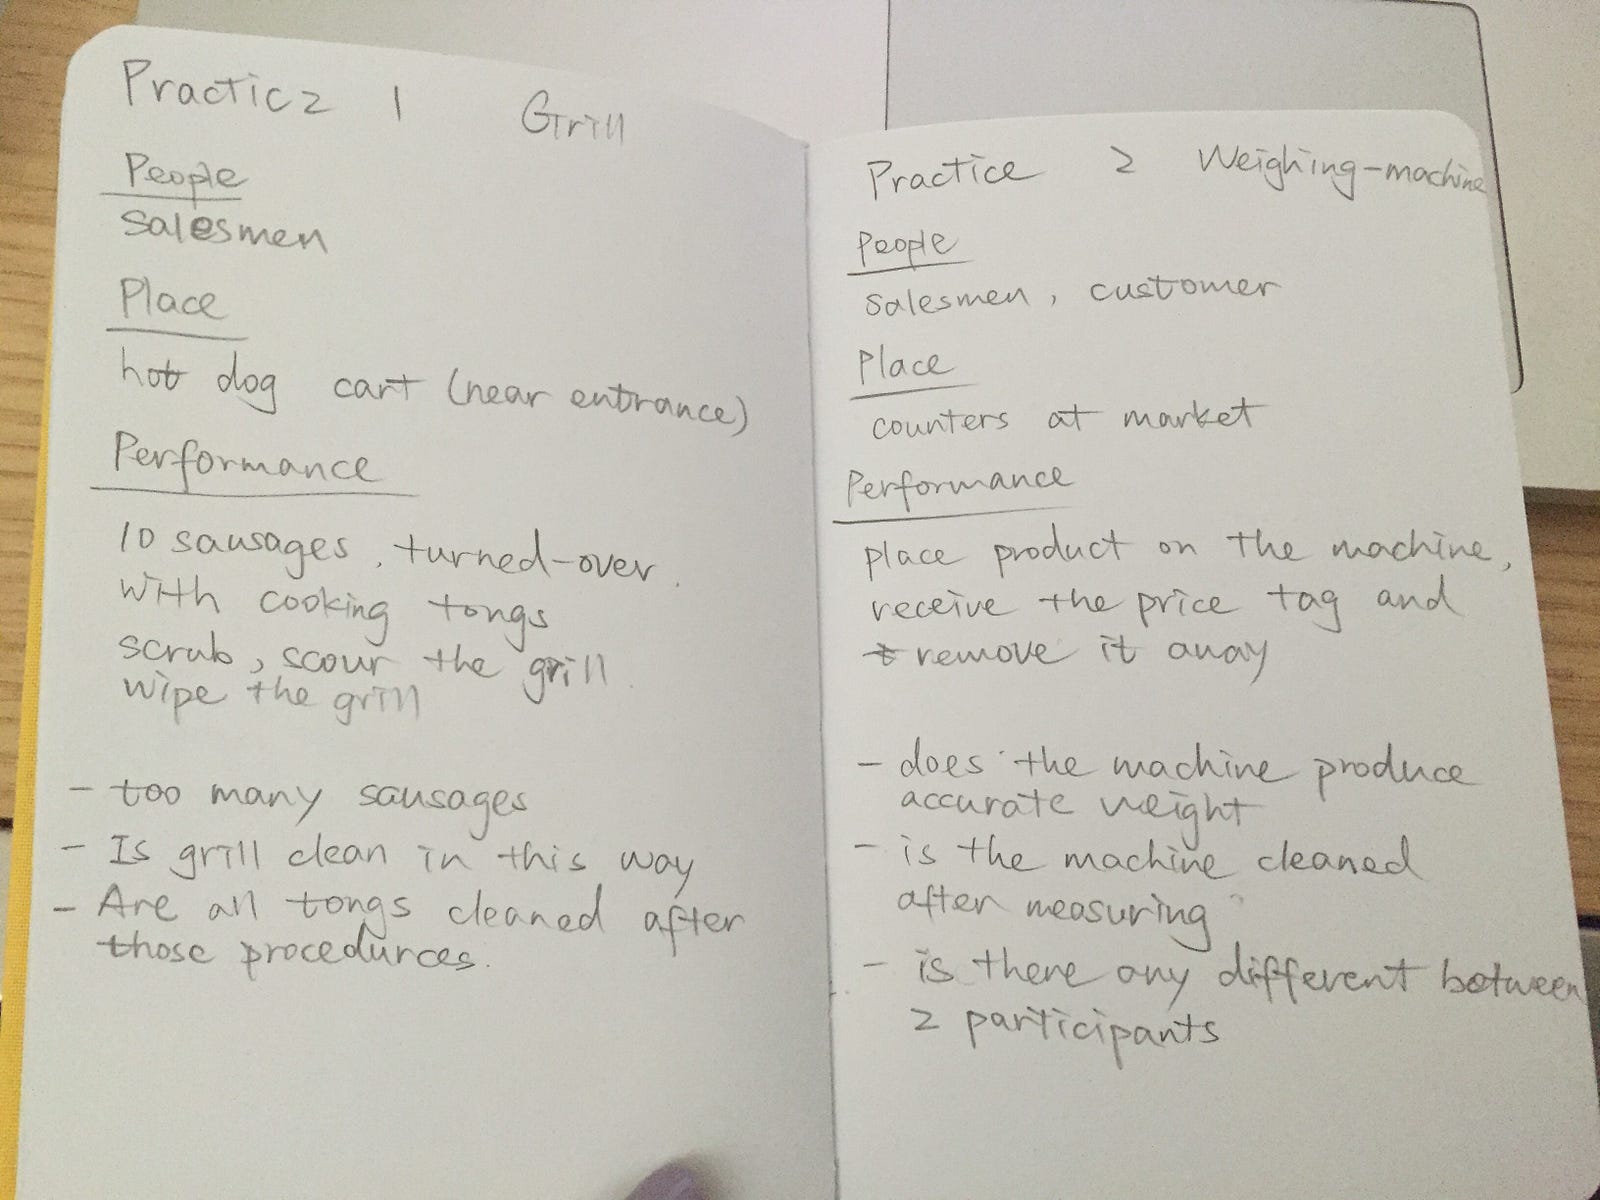 Practice 1 Grill
People
Salesmen
Place
hot dog cart (near entrance)
Performance
10 sausages, turned-over.
with cooking tongs
scrub, scour the grill.
wipe the grill
- too many sausages
- Is grill clean in this way
- Are all tongs cleaned after
those procedurces.
Practice 2 Weighing-machine
People
salesmen, customer
Place
counters at market
Performance
place product on the machine,
receive the price tag and
remove it away
- does the machine produce
accurate weight
- is the machine cleaned
after measuring
- is there any different between
2 participants